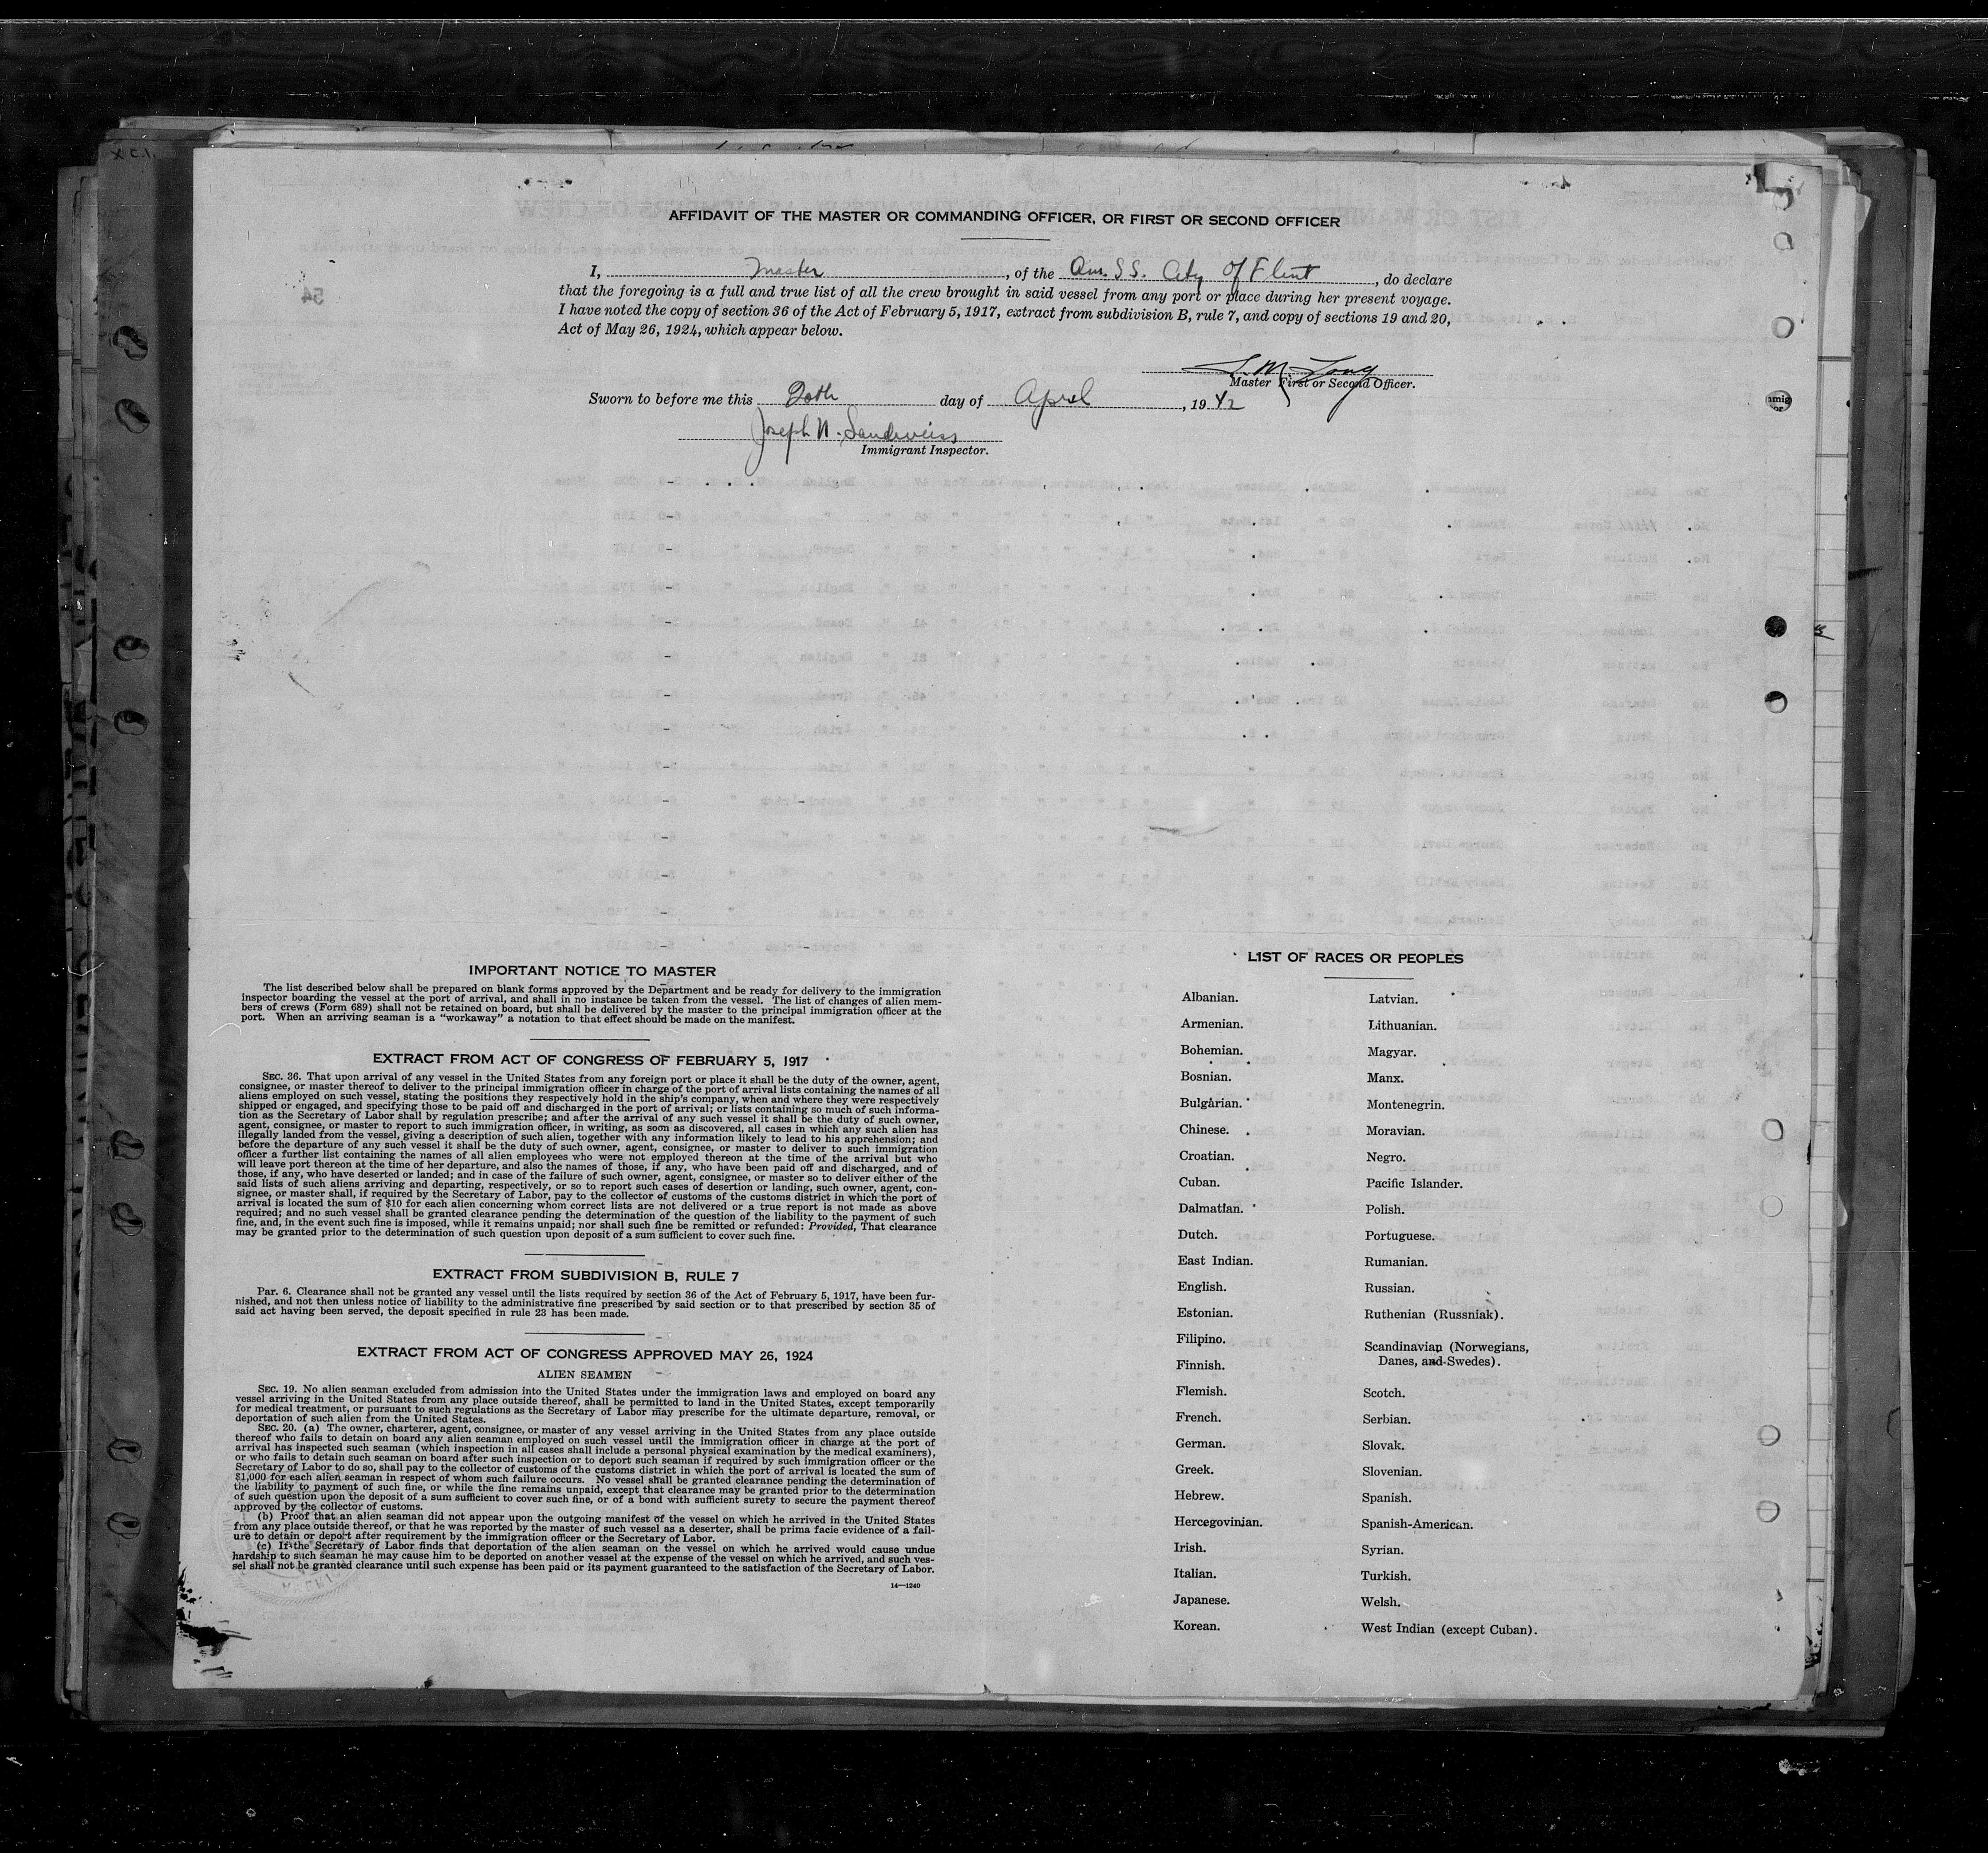 AFFIDAVIT OF THE MASTER OR COMMANDING OFFICER, OR FIRST OR SECOND OFFICER
I, Master, of the Am. S S. City of Flint, do declare
that the foregoing is a full and true list of all the crew brought in said vessel from any port or place during her present voyage.
I have noted the copy of section 36 of the Act of February 5, 1917, extract from subdivision B, rule 7, and copy of sections 19 and 20,
Act of May 26, 1924, which appear below.
L. M. Long
Master First or Second Officer.
Sworn to before me this 20th day of April, 1942
Joseph N. Sandweiss
Immigrant Inspector.
IMPORTANT NOTICE TO MASTER
The list described below shall be prepared on blank forms approved by the Department and be ready for delivery to the immigration
inspector boarding the vessel at the port of arrival, and shall in no instance be taken from the vessel. The list of changes of alien mem-
bers of crews (Form 689) shall not be retained on board, but shall be delivered by the master to the principal immigration officer at the
port. When an arriving seaman is a "workaway" a notation to that effect should be made on the manifest.
EXTRACT FROM ACT OF CONGRESS OF FEBRUARY 5, 1917
SEC. 36. That upon arrival of any vessel in the United States from any foreign port or place it shall be the duty of the owner, agent,
consignee, or master thereof to deliver to the principal immigration officer in charge of the port of arrival lists containing the names of all
aliens employed on such vessel, stating the positions they respectively hold in the ship's company, when and where they were respectively
shipped or engaged, and specifying those to be paid off and discharged in the port of arrival; or lists containing so much of such informa-
tion as the Secretary of Labor shall by regulation prescribe; and after the arrival of any such vessel it shall be the duty of such owner,
agent, consignee, or master to report to such immigration officer, in writing, as soon as discovered, all cases in which any such alien has
illegally landed from the vessel, giving a description of such alien, together with any information likely to lead to his apprehension; and
before the departure of any such vessel it shall be the duty of such owner, agent, consignee, or master to deliver to such immigration
officer a further list containing the names of all alien employees who were not employed thereon at the time of the arrival but who
will leave port thereon at the time of her departure, and also the names of those, if any, who have been paid off and discharged, and of
those, if any, who have deserted or landed; and in case of the failure of such owner, agent, consignee, or master so to deliver either of the
said lists of such aliens arriving and departing, respectively, or so to report such cases of desertion or landing, such owner, agent, con-
signee, or master shall, if required by the Secretary of Labor, pay to the collector of customs of the customs district in which the port of
arrival is located the sum of $10 for each alien concerning whom correct lists are not delivered or a true report is not made as above
required; and no such vessel shall be granted clearance pending the determination of the question of the liability to the payment of such
fine, and, in the event such fine is imposed, while it remains unpaid; nor shall such fine be remitted or refunded: Provided, That clearance
may be granted prior to the determination of such question upon deposit of a sum sufficient to cover such fine.
EXTRACT FROM SUBDIVISION B, RULE 7
Par. 6. Clearance shall not be granted any vessel until the lists required by section 36 of the Act of February 5, 1917, have been fur-
nished, and not then unless notice of liability to the administrative fine prescribed by said section or to that prescribed by section 35 of
said act having been served, the deposit specified in rule 23 has been made.
EXTRACT FROM ACT OF CONGRESS APPROVED MAY 26, 1924
ALIEN SEAMEN
SEC. 19. No alien seaman excluded from admission into the United States under the immigration laws and employed on board any
vessel arriving in the United States from any place outside thereof, shall be permitted to land in the United States, except temporarily
for medical treatment, or pursuant to such regulations as the Secretary of Labor may prescribe for the ultimate departure, removal, or
deportation of such alien from the United States.
SEC. 20. (a) The owner, charterer, agent, consignee, or master of any vessel arriving in the United States from any place outside
thereof who fails to detain on board any alien seaman employed on such vessel until the immigration officer in charge at the port of
arrival has inspected such seaman (which inspection in all cases shall include a personal physical examination by the medical examiners),
or who fails to detain such seaman on board after such inspection or to deport such seaman if required by such immigration officer or the
Secretary of Labor to do so, shall pay to the collector of customs of the customs district in which the port of arrival is located the sum of
$1,000 for each alien seaman in respect of whom such failure occurs. No vessel shall be granted clearance pending the determination of
the liability to payment of such fine, or while the fine remains unpaid, except that clearance may be granted prior to the determination
of such question upon the deposit of a sum sufficient to cover such fine, or of a bond with sufficient surety to secure the payment thereof
approved by the collector of customs.
(b) Proof that an alien seaman did not appear upon the outgoing manifest of the vessel on which he arrived in the United States
from any place outside thereof, or that he was reported by the master of such vessel as a deserter, shall be prima facie evidence of a fail-
ure to detain or deport after requirement by the immigration officer or the Secretary of Labor.
(c) If the Secretary of Labor finds that deportation of the alien seaman on the vessel on which he arrived would cause undue
hardship to such seaman he may cause him to be deported on another vessel at the expense of the vessel on which he arrived, and such ves-
sel shall not be granted clearance until such expense has been paid or its payment guaranteed to the satisfaction of the Secretary of Labor.
14—1240
LIST OF RACES OR PEOPLES
Albanian.
Armenian.
Bohemian.
Bosnian.
Bulgarian.
Chinese.
Croatian.
Cuban.
Dalmatian.
Dutch.
East Indian.
English.
Estonian.
Filipino.
Finnish.
Flemish.
French.
German.
Greek.
Hebrew.
Hercegovinian.
Irish.
Italian.
Japanese.
Korean.
Latvian.
Lithuanian.
Magyar.
Manx.
Montenegrin.
Moravian.
Negro.
Pacific Islander.
Polish.
Portuguese.
Rumanian.
Russian.
Ruthenian (Russniak).
Scandinavian (Norwegians,
Danes, and Swedes).
Scotch.
Serbian.
Slovak.
Slovenian.
Spanish.
Spanish-American.
Syrian.
Turkish.
Welsh.
West Indian (except Cuban).